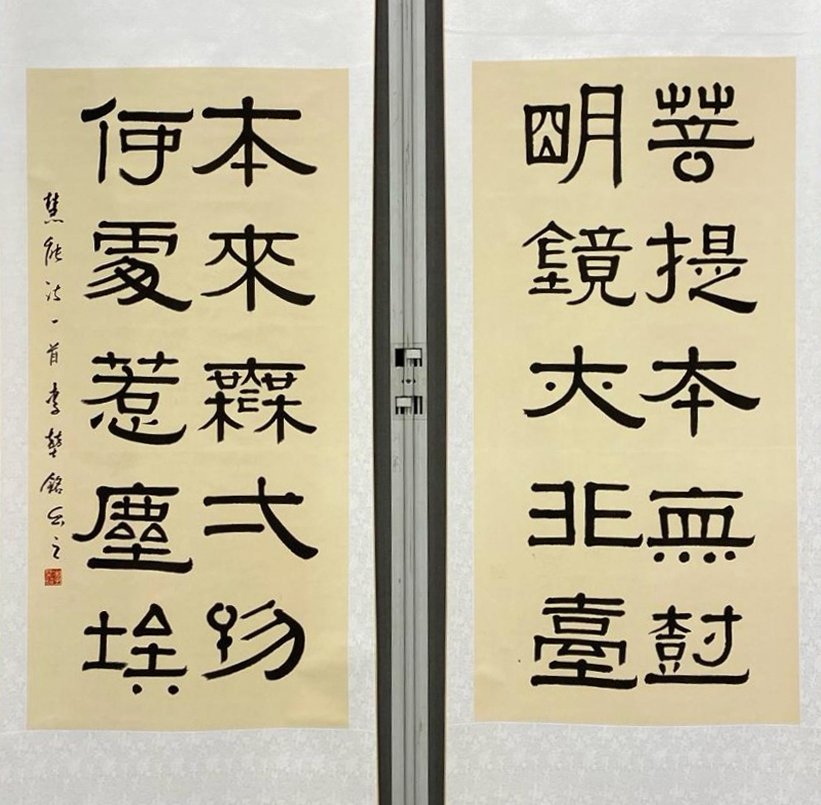 菩提本無樹
明鏡亦非臺
本來無弌物
何處惹塵埃
慧能詩一首李銘書之